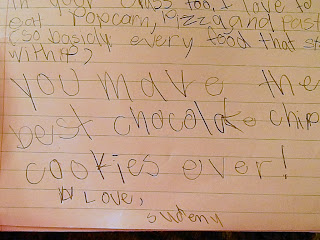 in your class too. I love to
eat popcorn, Pizza and Past
(so basicly every food that st
with P)
you make the
best chocolate chip
cookies ever!
Love,